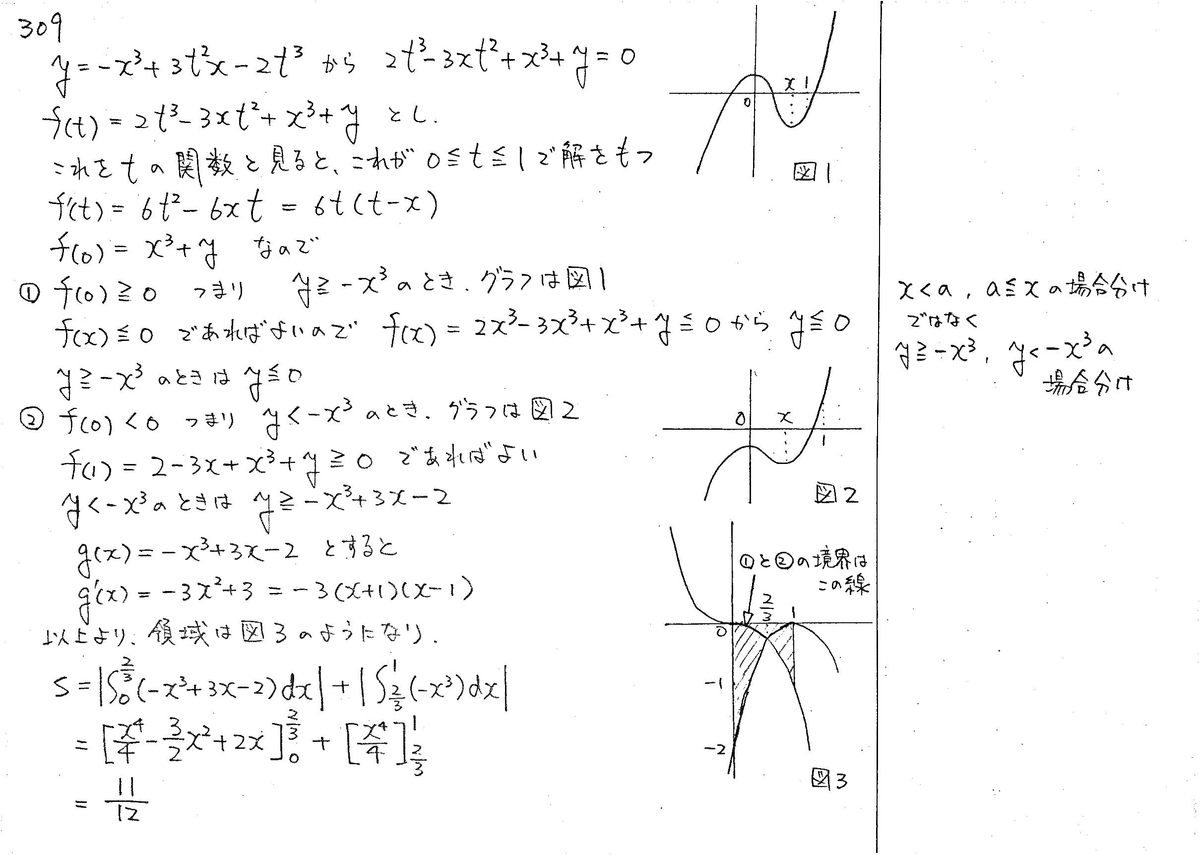 309
y=-x³+3t²x-2t³ から 2t³-3xt²+x³+y=0
f(t)=2t³-3xt²+x³+y とし.
これをtの関数と見ると、これが 0≦t≦1で解をもつ
f'(t)=6t²-6xt=6t(t-x)
f(0)=x³+y なので
① f(0)≧0 つまり y≧-x³のとき. グラフは図1
f(x)≦0 であればよいので f(x)=2x³-3x³+x³+y≦0から y≦0
y≧-x³のときは y≦0
② f(0)<0 つまり y<-x³のとき. グラフは図2
f(1)=2-3x+x³+y≧0 であればよい
y<-x³のときは y≧-x³+3x-2
g(x)=-x³+3x-2 とすると
g'(x)=-3x²+3=-3(x+1)(x-1)
以上より、領域は図3のようになり.
S=|∫₀^{2/3}(-x³+3x-2)dx|+|∫_{2/3}^1(-x³)dx|
=[x⁴/4-3/2x²+2x]₀^{2/3}+[x⁴/4]_{2/3}^1
=11/12
0 x 1
図1
0 x 1
図2
①と②の境界は
この線
2/3 1
0
-1
-2
図3
x<a, a≦xの場合分け
ではなく
y≧-x³, y<-x³の
場合分け